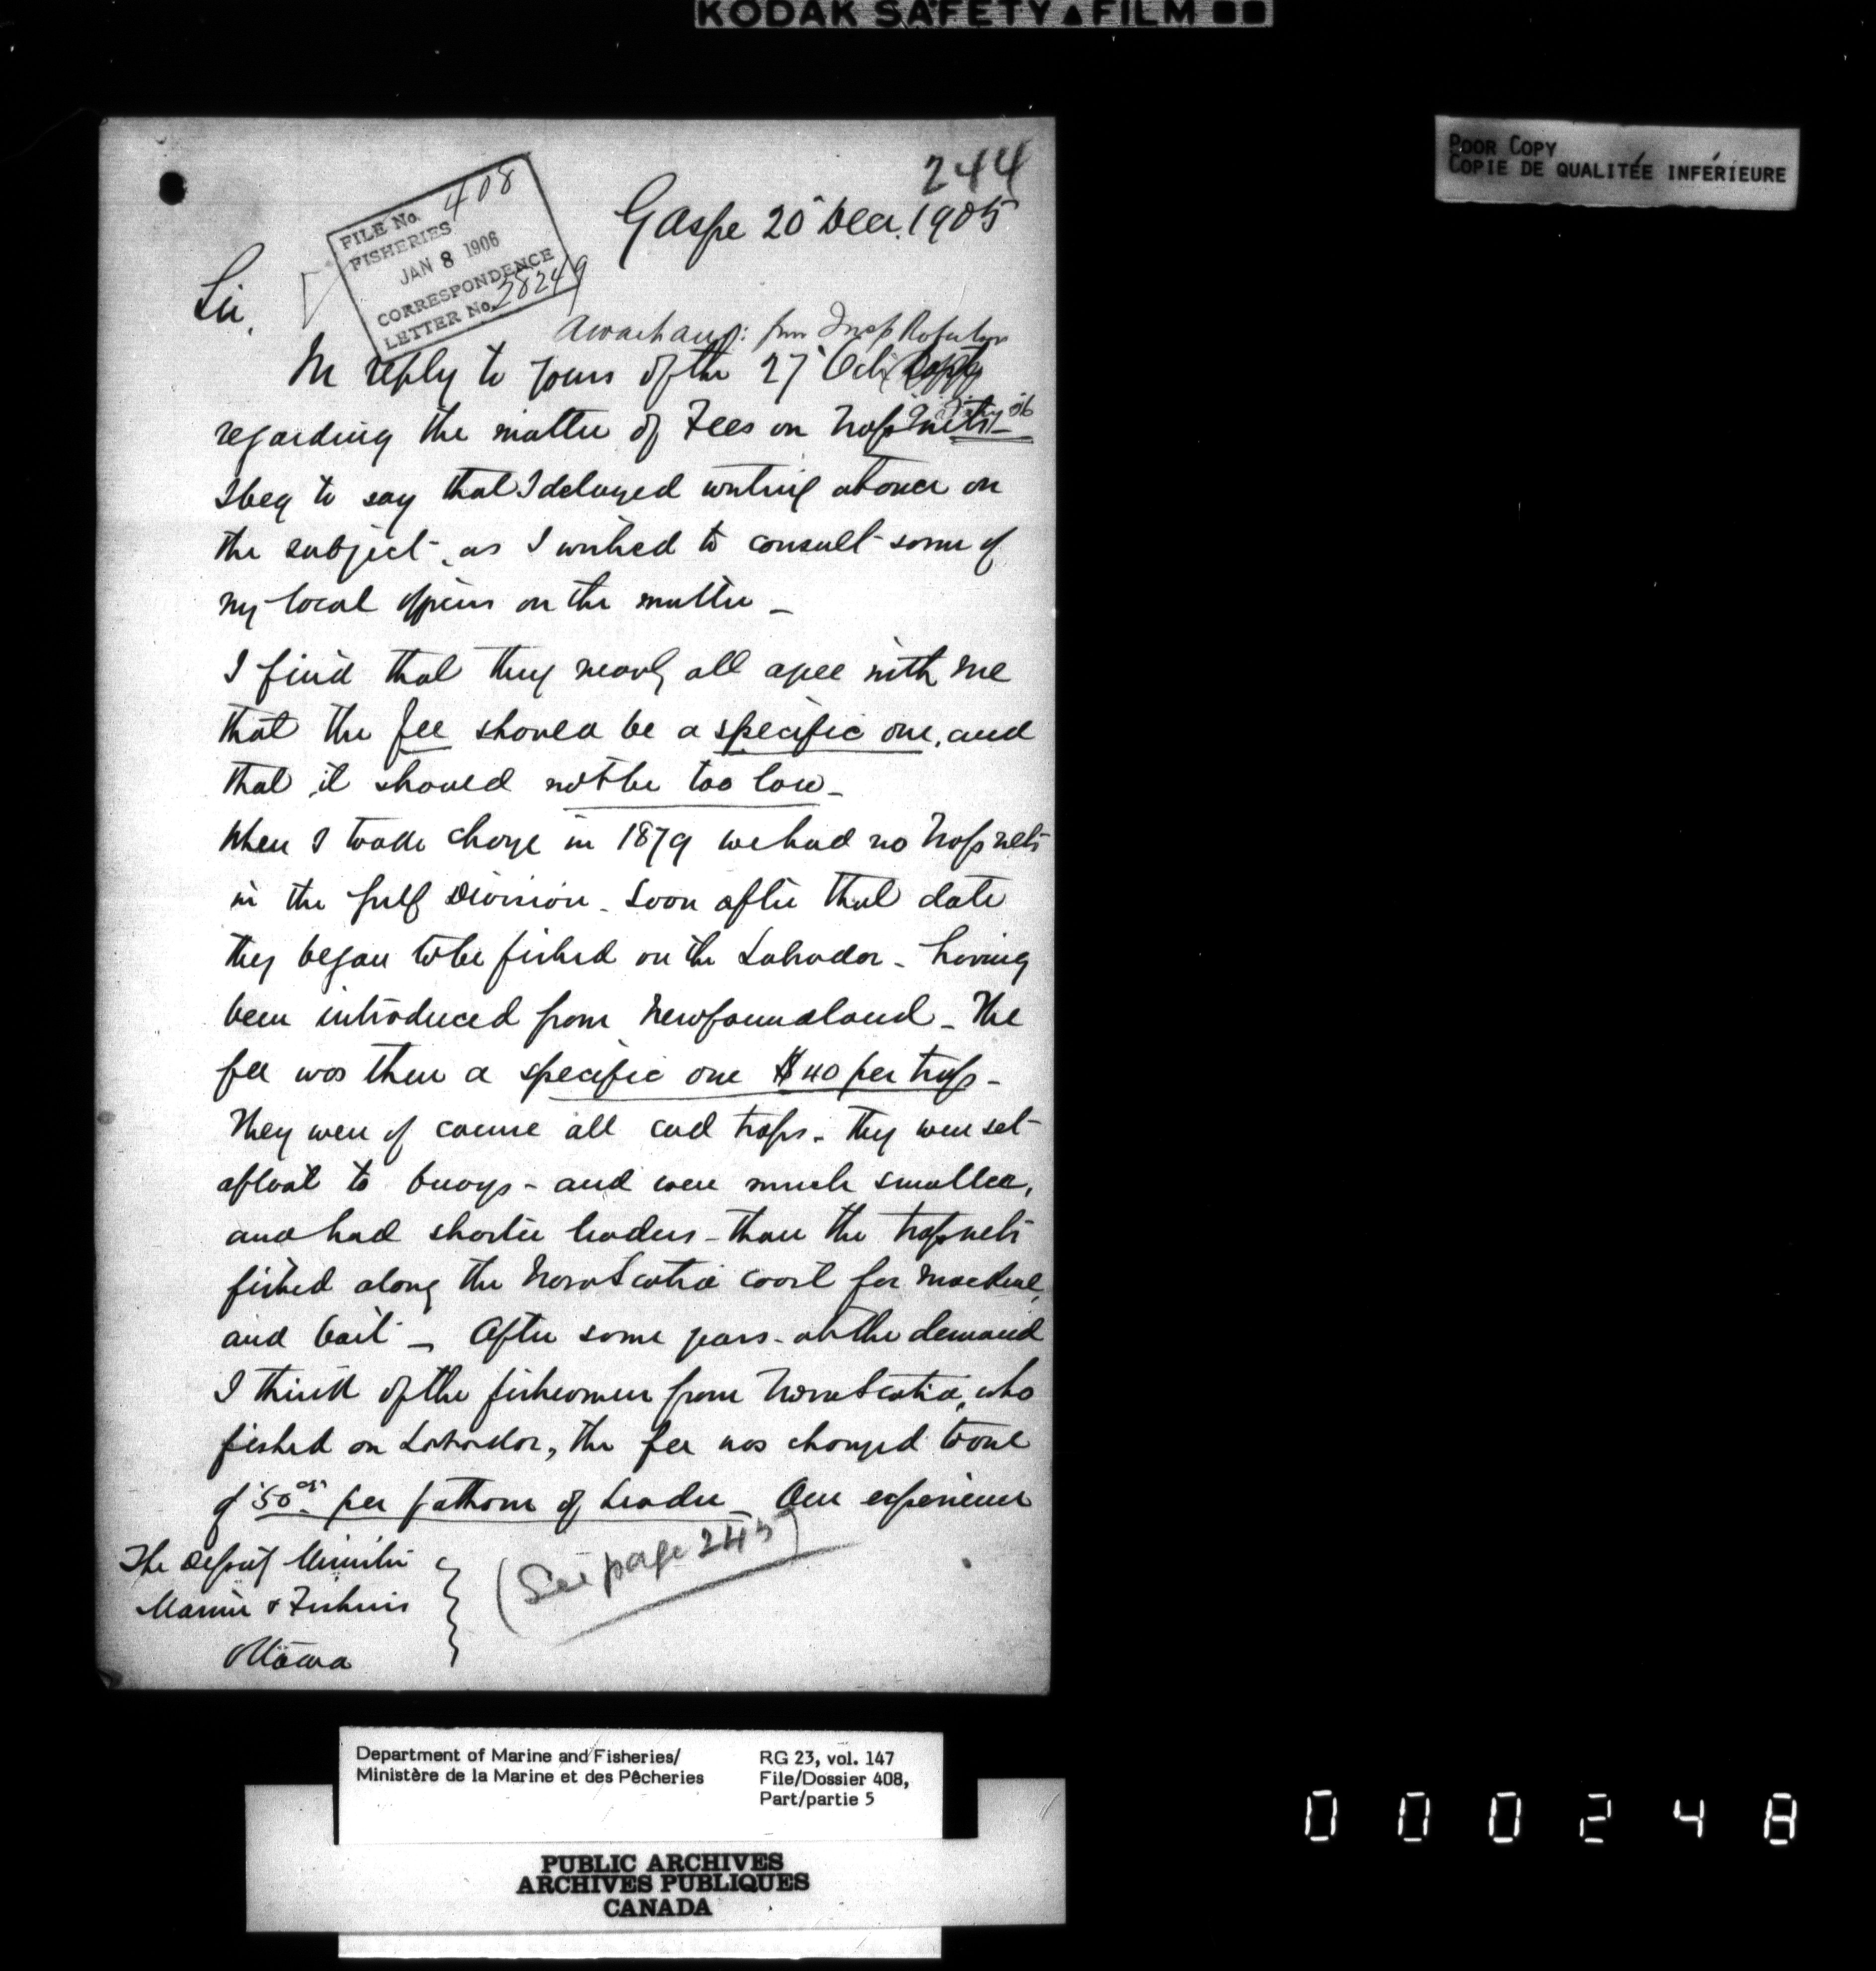 KODAK SAFETY ▲ FILM
POOR COPY
COPIE DE QUALITÉE INFÉRIEURE
244
FILE No. 408
FISHERIES
JAN 8 1906
CORRESPONDENCE
LETTER No. 28249
Gaspe 20 Decr. 1905
Sir,
Await ansr: from Insp
In reply to yours of the 27 Oct
regarding the matter of Fees on Trap nets
I beg to say that I delayed writing at once on
the subject, as I wished to consult some of
my local officers on the matter _
I find that they nearly all agree with me
that the fee should be a specific one, and
that it should not be too low _
When I took charge in 1879 we had no Trap nets
in the Gulf Division _ Soon after that date
they began to be fished on the Labrador _ having
been introduced from Newfoundland _ The
fee was then a specific one $40 per trap _
They were of course all cod traps. They were set
afloat to buoys - and were much smaller,
and had shorter leaders - than the trap nets
fished along the Nova Scotia coast for mackerel,
and bait _ After some years - at the demand
I think of the fishermen from Nova Scotia, who
fished on Labrador, the fee was changed to one
of 50cts per fathom of Leader _ Our experience
The Deputy Minister
Marine & Fisheries
Ottawa
(See page 245)
Department of Marine and Fisheries/
Ministère de la Marine et des Pêcheries
RG 23, vol. 147
File/Dossier 408,
Part/partie 5
PUBLIC ARCHIVES
ARCHIVES PUBLIQUES
CANADA
000248